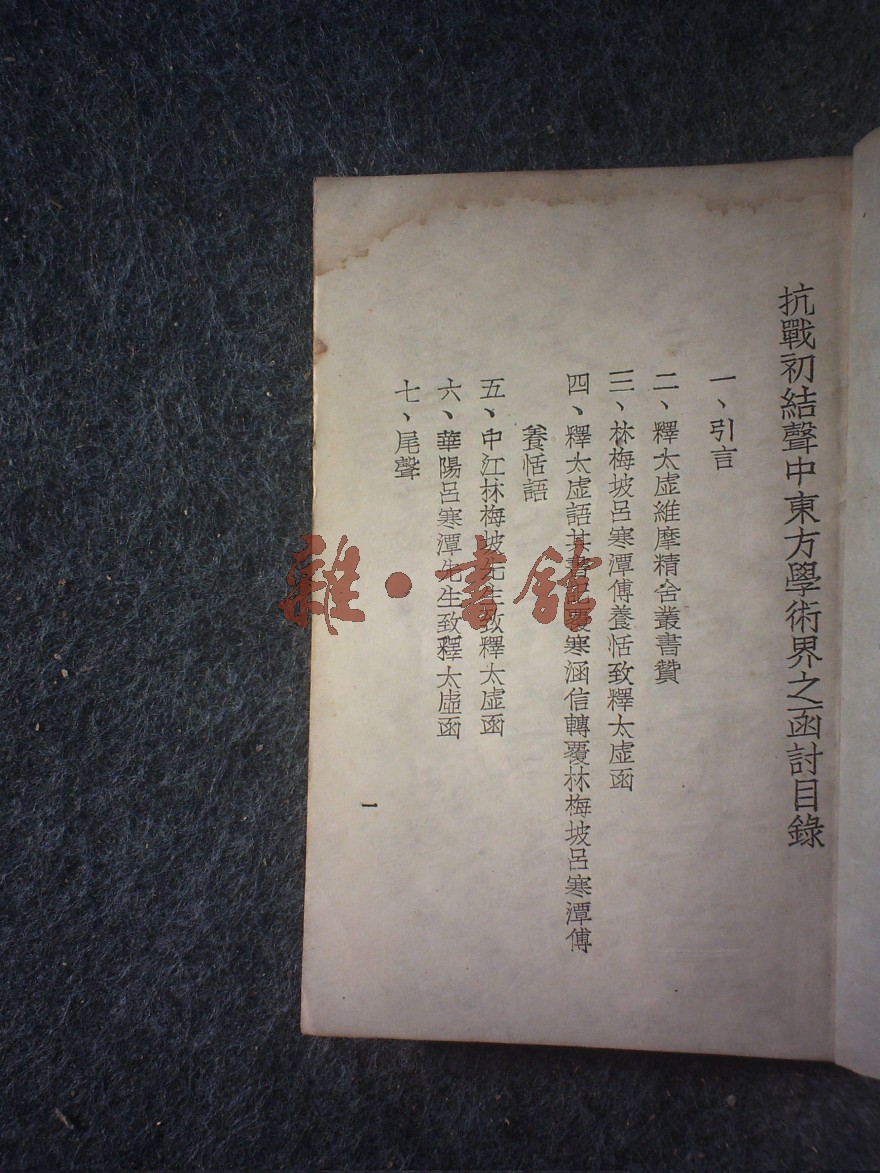 抗戰初結聲中東方學術界之函討目錄
一、引言
二、釋太虛維摩精舍叢書贊
三、林梅坡呂寒潭傅養恬致釋太虛函
四、釋太虛語其書覆寒涵信轉覆林梅坡呂寒潭傅
養恬語
五、中江林梅坡先生致釋太虛函
六、華陽呂寒潭先生致釋太虛函
七、尾聲
一
雜·書館